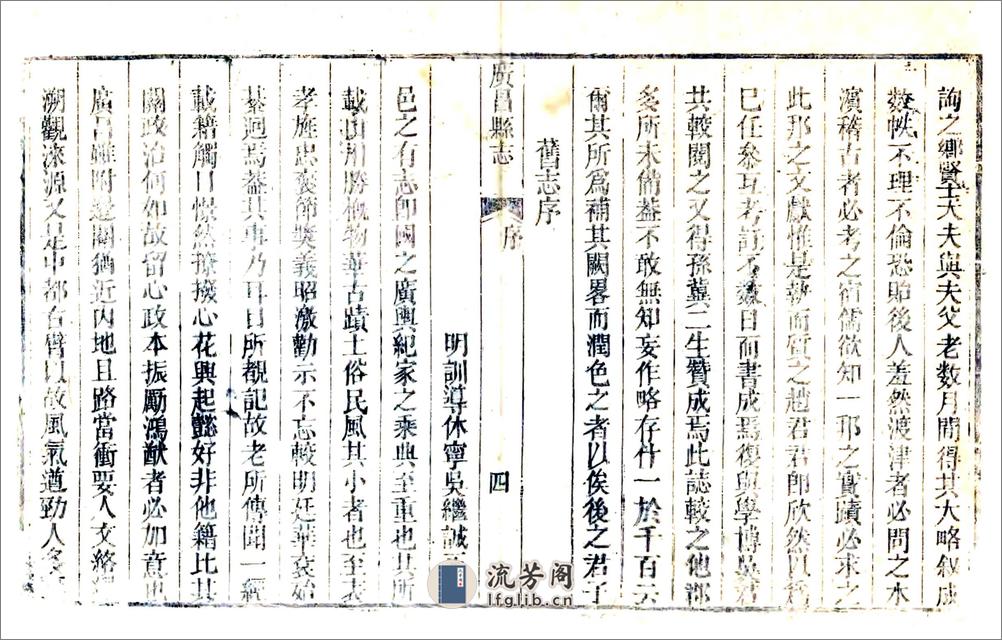 詢之鄉賢士大夫與夫父老数月間得其大略叙成
数帙不理不倫恐貽後人羞然渡津者必問之本
濱稽古者必考之宿儒欲知一邢之實蹟必求之
此邢之文獻惟是執而質之趙君君即欣然以爲
已任參互考訂不数日而書成焉復與學博吳君
共較閱之又得孫冀二生贊成焉此誌較之他郡
多所未備葢不敢無知妄作略存什一於千百云
爾其所爲補其闕畧而潤色之者以俟後之君子
舊志序
廣昌縣志 序 四
明訓導休寧吳繼誠
邑之有志即國之廣輿紀家之乘典至重也其所
載山川勝概物華古蹟土俗民風其小者也至表
孝旌忠褒節奬義昭激勸示不忘較明廷華衮始
綦迥焉葢其事乃耳目所觀記故老所傳聞一經
載籍觸目憬然撩撥心花興起懿好非他籍比其
關政治何如故留心政本振勵鴻猷者必加意也
廣昌雖附邊關猶近内地且路當衝要人文絡
溯觀淶源又是中都右臂以故風氣遒勁人
流芳阁
lfglib.cn